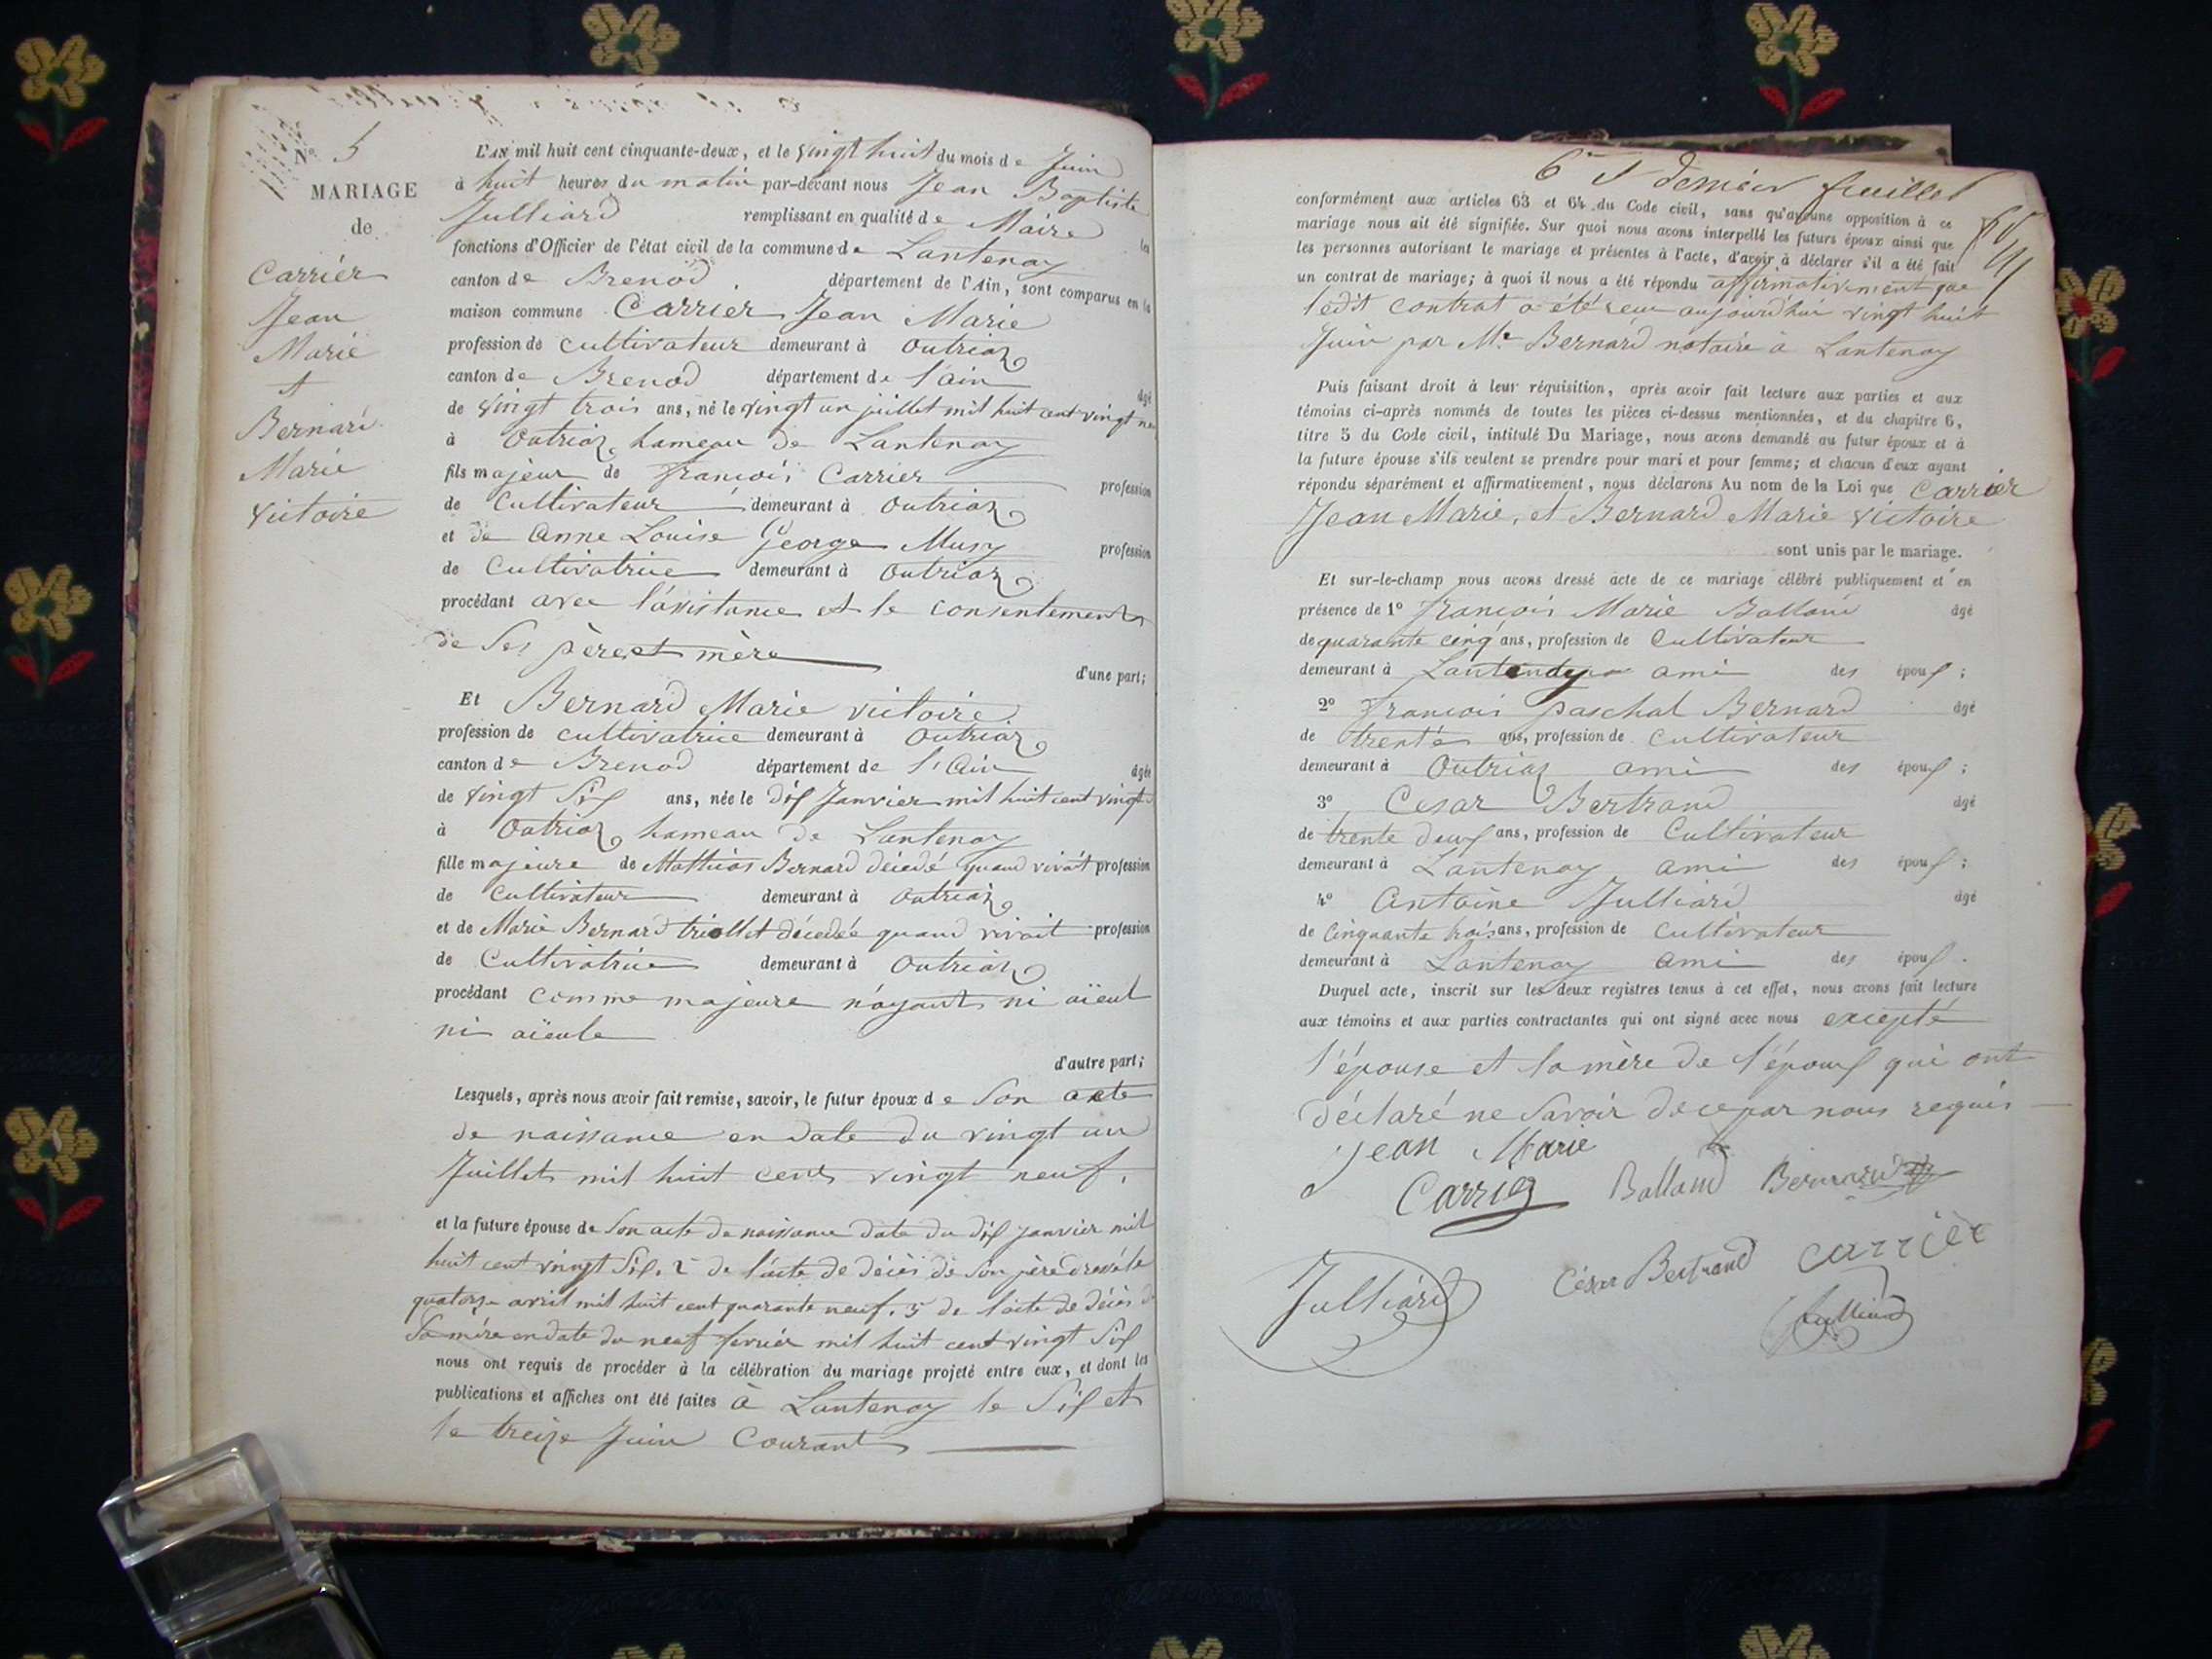 N° 5
MARIAGE
de
Carrier
Jean
Marie
et
Bernard
Marie
Victoire
L'AN mil huit cent cinquante-deux, et le vingt huit du mois de Juin
à huit heures du matin par-devant nous Jean Baptiste
Julliard remplissant en qualité de Maire les
fonctions d'Officier de l'état civil de la commune de Lantenay
canton de Brenod département de l'Ain, sont comparus en la
maison commune Carrier Jean Marie
profession de cultivateur demeurant à Outriaz
canton de Brenod département de l'ain âgé
de vingt trois ans, né le vingt un juillet mil huit cent vingt neuf
à Outriaz hameau de Lantenay
fils majeur de francois Carrier profession
de Cultivateur demeurant à Outriaz
et de Anne Louise George Musy profession
de Cultivatrice demeurant à Outriaz
procédant avec l'assistance et le consentement
de ses père et mère
d'une part;
Et Bernard Marie victoire
profession de cultivatrice demeurant à Outriaz
canton de Brenod département de l'Ain âgée
de vingt Six ans, née le dix Janvier mil huit cent vingt
à Outriaz hameau de Lantenay
fille majeure de Mathias Bernard décédé quand vivait profession
de Cultivateur demeurant à Outriaz
et de Marie Bernard triollet décedée quand vivait profession
de Cultivatrice demeurant à Outriaz
procédant comme majeure n'ayant ni aïeul
ni aïeule
d'autre part;
Lesquels, après nous avoir fait remise, savoir, le futur époux de Son acte
de naissance en date du vingt un
Juillet mil huit cent vingt neuf.
et la future épouse de Son acte de naissance date du dix janvier mil
huit cent vingt Six. 2° de l'acte de décès de son père dressé le
quatorze avril mil huit cent quarante neuf. 3° de l'acte de décès de
Sa mère en date du neuf fevrier mil huit cent vingt Six
nous ont requis de procéder à la célébration du mariage projeté entre eux, et dont les
publications et affiches ont été faites à Lantenay le Six et
le treize Juin Courant
6e et dernier feuillet
conformément aux articles 63 et 64 du Code civil, sans qu'aucune opposition à ce
mariage nous ait été signifiée. Sur quoi nous avons interpellé les futurs époux ainsi que
les personnes autorisant le mariage et présentes à l'acte, d'avoir à déclarer s'il a été fait
un contrat de mariage; à quoi il nous a été répondu affirmativement que
ledit contrat a été reçu aujourd'hui vingt huit
Juin par Me Bernard notaire à Lantenay
Puis faisant droit à leur réquisition, après avoir fait lecture aux parties et aux
témoins ci-après nommés de toutes les pièces ci-dessus mentionnées, et du chapitre 6,
titre 5 du Code civil, intitulé Du Mariage, nous avons demandé au futur époux et à
la future épouse s'ils veulent se prendre pour mari et pour femme; et chacun d'eux ayant
répondu séparément et affirmativement, nous déclarons Au nom de la Loi que Carrier
Jean Marie, et Bernard Marie Victoire
sont unis par le mariage.
Et sur-le-champ nous avons dressé acte de ce mariage célébré publiquement et en
présence de 1° francois Marie Balland âgé
de quarante cinq ans, profession de Cultivateur
demeurant à Lantenay ami des époux;
2° francois paschal Bernard âgé
de trente ans, profession de Cultivateur
demeurant à Outriaz ami des époux;
3° Cesar Bertrand âgé
de trente deux ans, profession de Cultivateur
demeurant à Lantenay ami des époux;
4° Antoine Julliard âgé
de Cinquante trois ans, profession de Cultivateur
demeurant à Lantenay ami des époux.
Duquel acte, inscrit sur les deux registres tenus à cet effet, nous avons fait lecture
aux témoins et aux parties contractantes qui ont signé avec nous excepté
l'épouse et la mère de l'époux qui ont
déclaré ne savoir de ce par nous requis
jean Marie
Carrier Balland Bernard
Julliard César Bertrand Carrier
Julliard